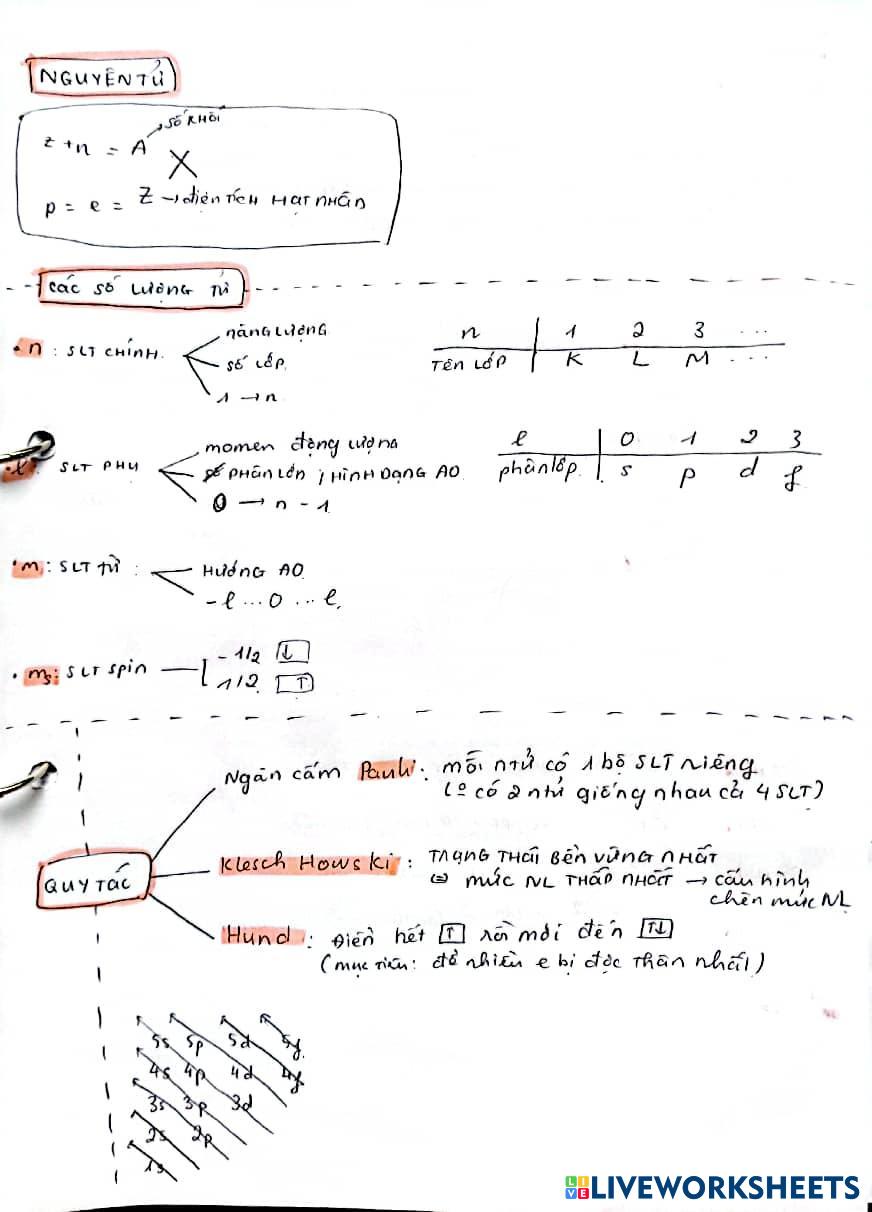 NGUYÊN TỬ
SỐ KHỐI
Z + n = A
X
p = e = Z → điện TÍCH HẠT NHÂN
CÁC SỐ LƯỢNG TỬ
• n : SLT CHÍNH
năng LƯỢNG
SỐ LỚP
1 → n
n 1 2 3 ...
TÊN LỚP K L M ...
• l : SLT PHỤ
momen động lượng
PHÂN LỚN ; HÌNH DẠNG AO
0 → n - 1
l 0 1 2 3
phân lớp s p d f
• m : SLT từ :
HƯỚNG AO
-l ... 0 ... l
• ms: SLT spin
- 1/2 ↓
1/2 ↑
QUY TẮC
Ngăn cấm Pauli : mỗi ntử có 1 bộ SLT riêng
(º có 2 ntử giống nhau cả 4 SLT)
Klesch Howski : TRẠNG THÁI BỀN VỮNG NHẤT
⇔ mức NL THẤP NHẤT → cấu hình
chèn mức NL
Hund : Điền hết ↑ rồi mới đến ↑↓
(mục tiêu: để nhiều e bị độc thân nhất)
5s 5p 5d 5f
4s 4p 4d 4f
3s 3p 3d
2s 2p
1s
LIVEWORKSHEETS